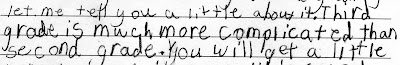 let me tell you a little about it. Third
grade is much more complicated than
second grade. You will get a little